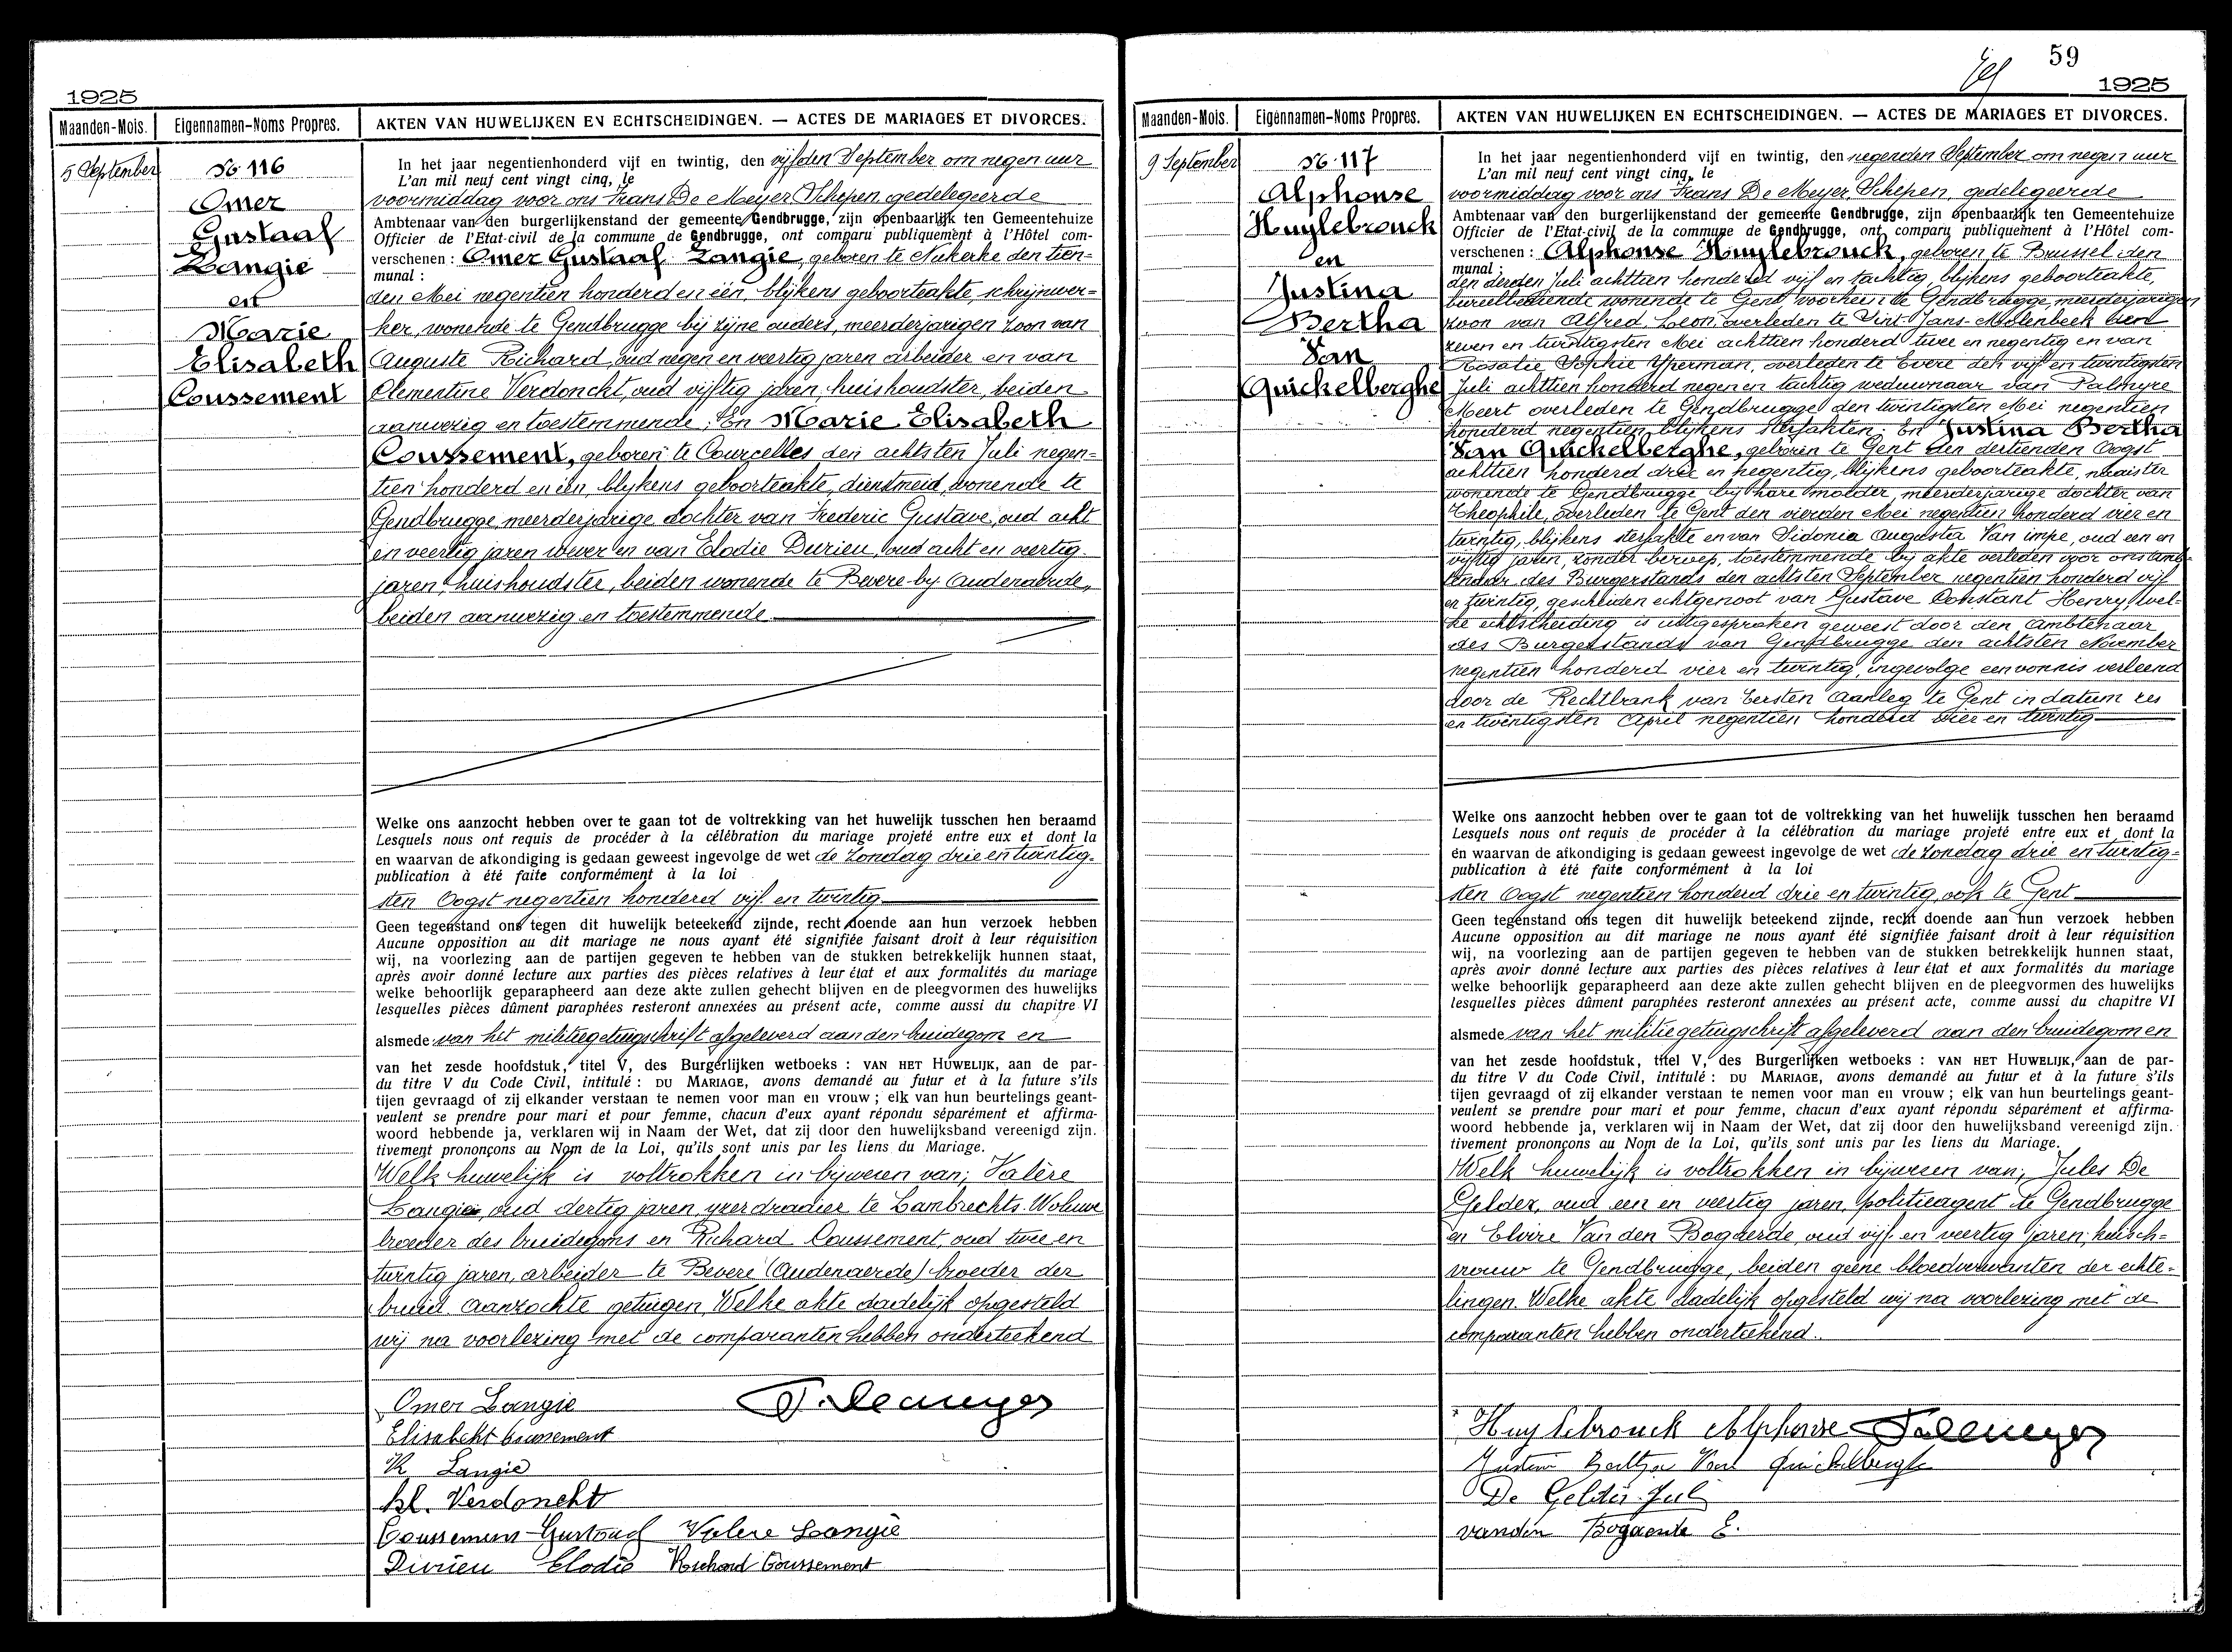 1925
Maanden-Mois.
Eigennamen-Noms Propres.
AKTEN VAN HUWELIJKEN EN ECHTSCHEIDINGEN. — ACTES DE MARIAGES ET DIVORCES.
5 September
No 116
Omer
Gustaaf
Langie
en
Marie
Elisabeth
Coussement
In het jaar negentienhonderd vijf en twintig, den vijfden September om negen uur
L'an mil neuf cent vingt cinq, le
voormiddag voor ons Frans De Meyer, Schepen, gedelegeerde
Ambtenaar van den burgerlijkenstand der gemeente Gendbrugge, zijn openbaarlijk ten Gemeentehuize
Officier de l'Etat-civil de la commune de Gendbrugge, ont comparu publiquement à l'Hôtel com-
verschenen : Omer Gustaaf Langie, geboren te Nukerke den tien-
munal :
den Mei negentien honderd en één, blijkens geboorteakte, schrijnwer-
ker, wonende te Gendbrugge bij zijne ouders, meerderjarigen zoon van
Auguste Richard, oud negen en veertig jaren arbeider en van
Clementine Verdonckt, oud vijftig jaren, huishoudster, beiden
aanwezig en toestemmende. En Marie Elisabeth
Coussement, geboren te Courcelles den achtsten Juli negen-
tien honderd en één, blijkens geboorteakte, dienstmeid, wonende te
Gendbrugge, meerderjarige dochter van Frederic Gustave, oud acht
en veertig jaren wever en van Elodie Durieu, oud acht en veertig
jaren, huishoudster, beiden wonende te Bevere-by Audenaerde,
beiden aanwezig en toestemmende
Welke ons aanzocht hebben over te gaan tot de voltrekking van het huwelijk tusschen hen beraamd
Lesquels nous ont requis de procéder à la célébration du mariage projeté entre eux et dont la
en waarvan de afkondiging is gedaan geweest ingevolge de wet de Zondag drie en twintig-
publication à été faite conformément à la loi
sten Oogst negentien honderd vijf en twintig
Geen tegenstand ons tegen dit huwelijk beteekend zijnde, recht doende aan hun verzoek hebben
Aucune opposition au dit mariage ne nous ayant été signifiée faisant droit à leur réquisition
wij, na voorlezing aan de partijen gegeven te hebben van de stukken betrekkelijk hunnen staat,
après avoir donné lecture aux parties des pièces relatives à leur état et aux formalités du mariage
welke behoorlijk geparapheerd aan deze akte zullen gehecht blijven en de pleegvormen des huwelijks
lesquelles pièces dûment paraphées resteront annexées au présent acte, comme aussi du chapitre VI
alsmede van het militiegetuigschrift afgeleverd aan den bruidegom en
van het zesde hoofdstuk, titel V, des Burgerlijken wetboeks : VAN HET HUWELIJK, aan de par-
du titre V du Code Civil, intitulé : DU MARIAGE, avons demandé au futur et à la future s'ils
tijen gevraagd of zij elkander verstaan te nemen voor man en vrouw ; elk van hun beurtelings geant-
veulent se prendre pour mari et pour femme, chacun d'eux ayant répondu séparément et affirma-
woord hebbende ja, verklaren wij in Naam der Wet, dat zij door den huwelijksband vereenigd zijn.
tivement prononçons au Nom de la Loi, qu'ils sont unis par les liens du Mariage.
Welk huwelijk is voltrokken in bijwezen van; Valère
Langie, oud dertig jaren, yzerdradier te Lambrechts-Woluwe
broeder des bruidegoms en Richard Coussement, oud twee en
twintig jaren, arbeider te Bevere (Audenaerde) broeder der
bruid. Aanzochte getuigen. Welke akte dadelijk opgesteld
wij na voorlezing met de comparanten hebben onderteekend
Omer Langie F. Demeyer
Elisabeth Coussement
R Langie
kl. Verdonckt
Coussement Gustaaf Valere Langie
Durieu Elodie Richard Coussement
59
1925
Maanden-Mois.
Eigennamen-Noms Propres.
AKTEN VAN HUWELIJKEN EN ECHTSCHEIDINGEN. — ACTES DE MARIAGES ET DIVORCES.
9 September
No 117
Alphonse
Huylebrouck
en
Justina
Bertha
Van
Quickelberghe
In het jaar negentienhonderd vijf en twintig, den negenden September om negen uur
L'an mil neuf cent vingt cinq, le
voormiddag voor ons Frans De Meyer, Schepen, gedelegeerde
Ambtenaar van den burgerlijkenstand der gemeente Gendbrugge, zijn openbaarlijk ten Gemeentehuize
Officier de l'Etat-civil de la commune de Gendbrugge, ont comparu publiquement à l'Hôtel com-
verschenen : Alphonse Huylebrouck, geboren te Brussel den
munal :
den derden Juli achttien honderd vijf en tachtig, blijkens geboorteakte,
bureelbediende wonende te Gent voorheen te Gendbrugge, meerderjarigen
zoon van Alfred, Leon, overleden te Sint-Jans-Molenbeek den
zeven en twintigsten Mei achttien honderd twee en negentig en van
Rosalie Sophie Yperman, overleden te Evere den vijf en twintigsten
Juli achttien honderd negen en tachtig weduwnaar van Palmyre
Meert overleden te Gendbrugge den twintigsten Mei negentien
honderd negentien, blijkens sterfakten. En Justina Bertha
Van Quickelberghe, geboren te Gent den dertienden Oogst
achttien honderd drie en negentig, blijkens geboorteakte, naaister
wonende te Gendbrugge by hare moeder, meerderjarige dochter van
Theophile, overleden te Gent den vierden Mei negentien honderd vier en
twintig, blijkens sterfakte en van Sidonia Augusta Van impe, oud een en
vijftig jaren, zonder beroep, toestemmende by akte verleden voor ons Amb-
tenaar des Burgerstands den achtsten September negentien honderd vijf
en twintig, gescheiden echtgenoot van Gustave Constant Henry, wel-
ke echtscheiding is uitgesproken geweest door den Ambtenaar
des Burgerstands van Gendbrugge den achtsten November
negentien honderd vier en twintig, ingevolge een vonnis verleend
door de Rechtbank van Eersten Aanleg te Gent in datum zes
en twintigsten April negentien honderd vier en twintig
Welke ons aanzocht hebben over te gaan tot de voltrekking van het huwelijk tusschen hen beraamd
Lesquels nous ont requis de procéder à la célébration du mariage projeté entre eux et dont la
en waarvan de afkondiging is gedaan geweest ingevolge de wet de Zondag drie en twintig-
publication à été faite conformément à la loi
sten Oogst negentien honderd drie en twintig, ook te Gent
Geen tegenstand ons tegen dit huwelijk beteekend zijnde, recht doende aan hun verzoek hebben
Aucune opposition au dit mariage ne nous ayant été signifiée faisant droit à leur réquisition
wij, na voorlezing aan de partijen gegeven te hebben van de stukken betrekkelijk hunnen staat,
après avoir donné lecture aux parties des pièces relatives à leur état et aux formalités du mariage
welke behoorlijk geparapheerd aan deze akte zullen gehecht blijven en de pleegvormen des huwelijks
lesquelles pièces dûment paraphées resteront annexées au présent acte, comme aussi du chapitre VI
alsmede van het militiegetuigschrift afgeleverd aan den bruidegom en
van het zesde hoofdstuk, titel V, des Burgerlijken wetboeks : VAN HET HUWELIJK, aan de par-
du titre V du Code Civil, intitulé : DU MARIAGE, avons demandé au futur et à la future s'ils
tijen gevraagd of zij elkander verstaan te nemen voor man en vrouw ; elk van hun beurtelings geant-
veulent se prendre pour mari et pour femme, chacun d'eux ayant répondu séparément et affirma-
woord hebbende ja, verklaren wij in Naam der Wet, dat zij door den huwelijksband vereenigd zijn.
tivement prononçons au Nom de la Loi, qu'ils sont unis par les liens du Mariage.
Welk huwelijk is voltrokken in bijwezen van; Jules De
Gelder, oud een en veertig jaren, politieagent te Gendbrugge
en Elvire Van den Bogaerde, oud vijf en veertig jaren, huisch-
vrouw te Gendbrugge, beiden geene bloedverwanten der echte-
lingen. Welke akte dadelijk opgesteld wij na voorlezing met de
comparanten hebben onderteekend.
Huylebrouck Alphonse F. Demeyer
Justina Bertha Van Quickelberghe
De Gelder Jul
vanden Bogaerde E.